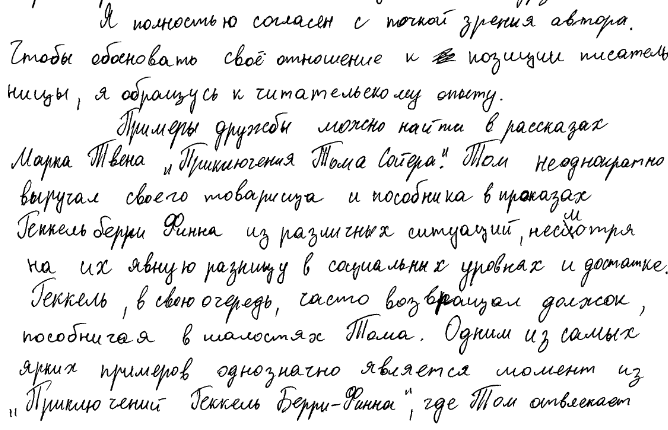 Я полностью согласен с точкой зрения автора.
Чтобы обосновать своё отношение к позиции писатель
ницы, я обращусь к читательскому опыту.
Примеры дружбы можно найти в рассказах
Марка Твена „Приключения Тома Сойера". Том неоднократно
выручал своего товарища и пособника в проказах
Геккель берри Финна из различных ситуаций, несмотря
на их явную разницу в социальных уровнах и достатке.
Геккель, в свою очередь, часто возвращал должок,
пособничая в шалостях Тома. Одним из самых
ярких примеров однозначно является момент из
„Приключений Геккель Берри-Финна", где Том отвлекает